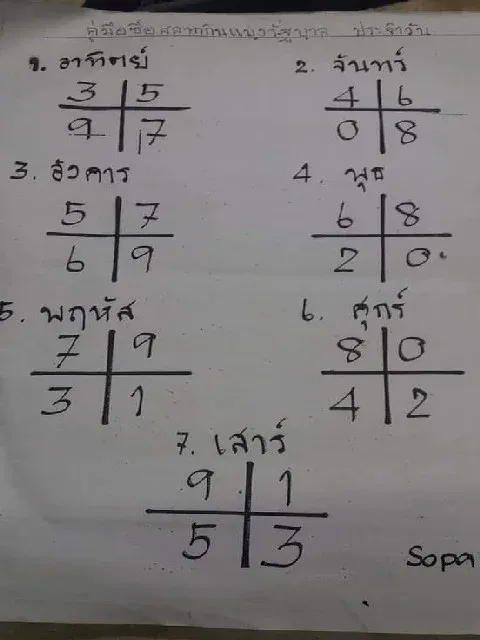 คู่มือซื้อสลากกินแบ่งรัฐบาล ประจำวัน
1. อาทิตย์
3 5
9 7
2. จันทร์
4 6
0 8
3. อังคาร
5 7
6 9
4. พุธ
6 8
2 0
5. พฤหัส
7 9
3 1
6. ศุกร์
8 0
4 2
7. เสาร์
9 1
5 3
Sopa